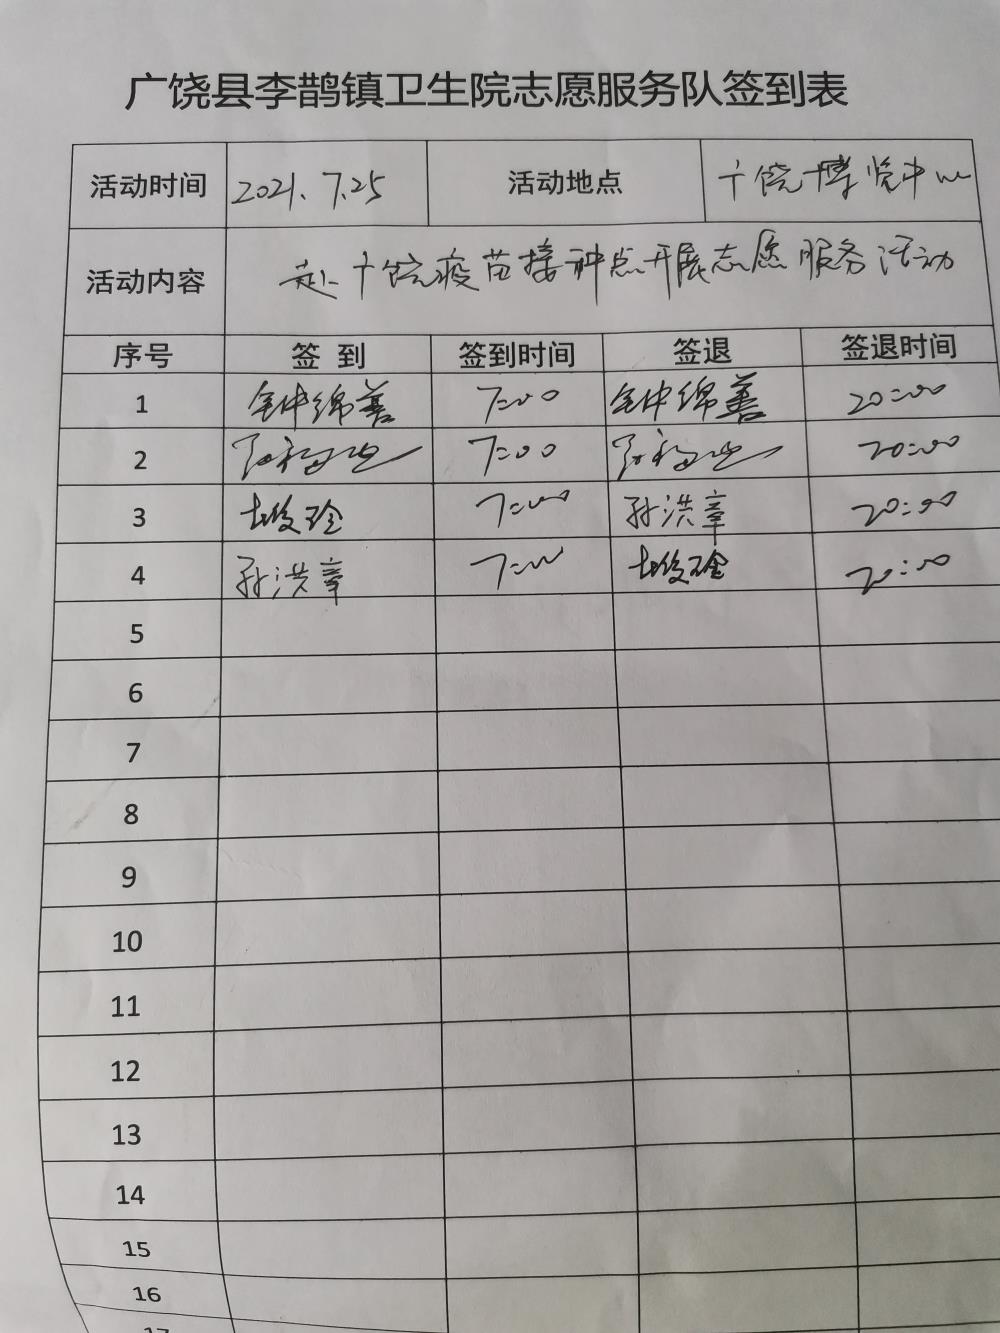 广饶县李鹊镇卫生院志愿服务队签到表
活动时间 2021.7.25 活动地点 广饶博览中心
活动内容 赴广饶疫苗接种点开展志愿服务活动
序号 签到 签到时间 签退 签退时间
1 钟绵善 7:00 钟绵善 20:00
2 7:00 20:00
3 7:00 孙洪章 20:00
4 孙洪章 7:00 20:00
5
6
7
8
9
10
11
12
13
14
15
16
17